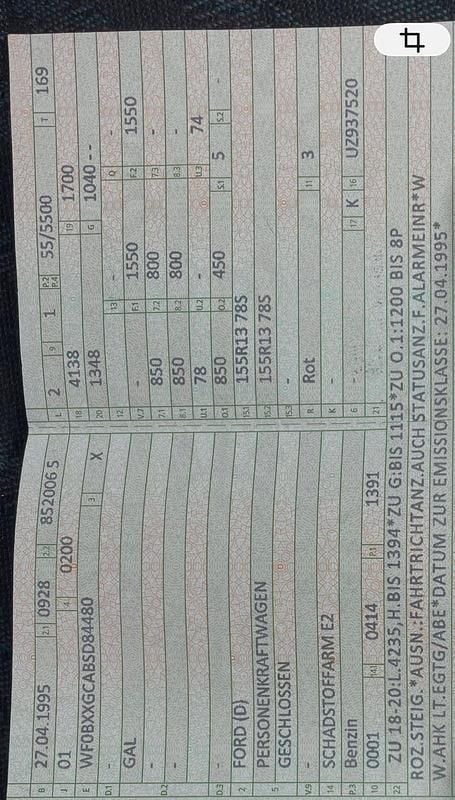 B 27.04.1995 2.1 0928 2.2 852006 5
J 01 4 0200
E WF0BXXGCABSD84480 3 X
D.1 -
GAL
D.2 -
-
-
D.3 -
2 FORD (D)
5 PERSONENKRAFTWAGEN
GESCHLOSSEN
V.9 -
14 SCHADSTOFFARM E2
P.3 Benzin
10 0001 14.1 0414 P.1 1391
L 2 9 1 P.2 P.4 55/5500 T 169
18 4138 19 1700
20 1348 G 1040 - -
12 - 13 - Q -
V.7 - F.1 1550 F.2 1550
7.1 850 7.2 800 7.3 -
8.1 850 8.2 800 8.3 -
U.1 78 U.2 - U.3 74
O.1 850 O.2 450 S.1 5 S.2 -
15.1 155R13 78S
15.2 155R13 78S
15.3 -
R Rot 11 3
K -
6 - 17 K 16 UZ937520
21
22 ZU 18-20:L.4235,H.BIS 1394*ZU G:BIS 1115*ZU O.1:1200 BIS 8P
ROZ.STEIG.*AUSN.:FAHRTRICHTANZ.AUCH STATUSANZ.F.ALARMEINR*W
W.AHK LT.EGTG/ABE*DATUM ZUR EMISSIONSKLASSE: 27.04.1995*